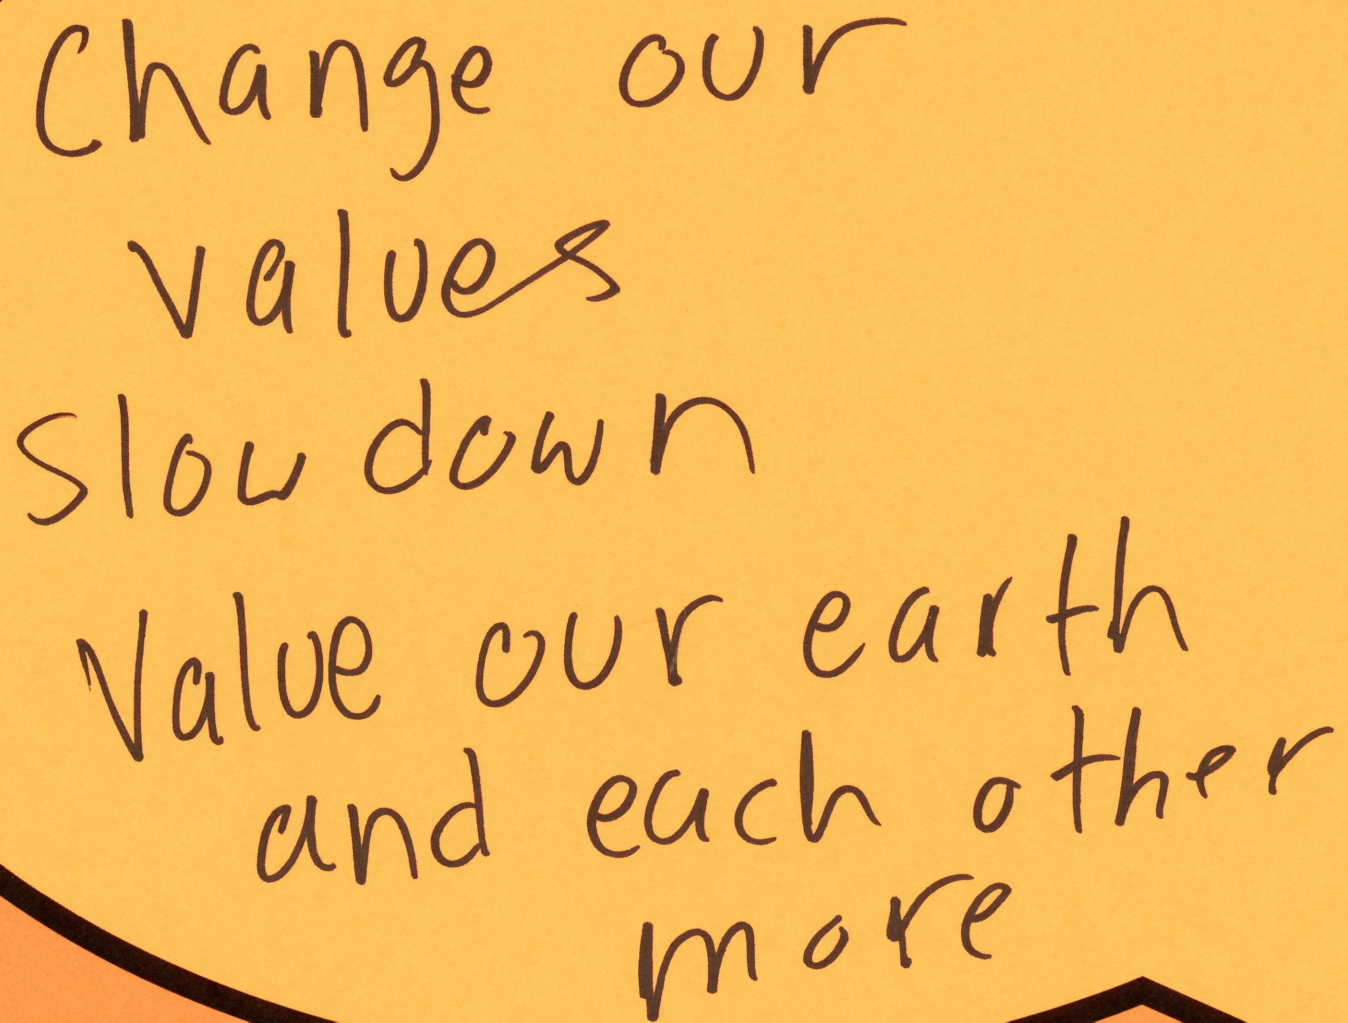 Change our
values
slow down
Value our earth
and each other
more